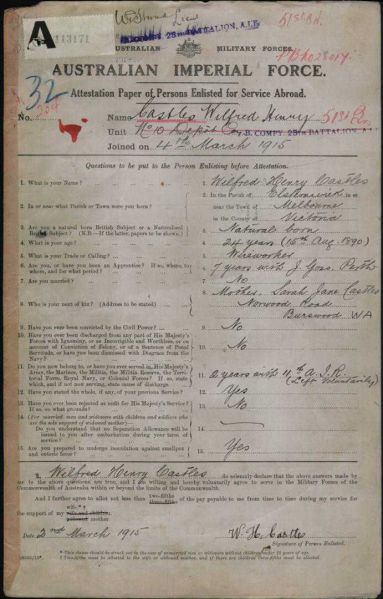 A
113171
B. COMPY. 28TH BATTALION, A.I.F.
51st Bn.
AUSTRALIAN MILITARY FORCES.
AUSTRALIAN IMPERIAL FORCE.
32
Attestation Paper of Persons Enlisted for Service Abroad.
No.
Name Castles Wilfred Henry
Unit No 10 Depot Co. B. COMPY. 28TH BATTALION, A.I.F. 51st Bn
Joined on 4th March 1915
Questions to be put to the Person Enlisting before Attestation.
1. What is your Name? 1. Wilfred Henry Castles
2. In or near what Parish or Town were you born? 2. In the Parish of Elsternwick in
near the Town of Melbourne
in the County of Victoria
3. Are you a natural born British Subject or a Naturalized
British Subject? (N.B.—If the latter, papers to be shown.) 3. Natural born
4. What is your age? 4. 24 years (15th Aug 1890)
5. What is your Trade or Calling? 5. Wireworker
6. Are you, or have you been an Apprentice? If so, where,
to whom, and for what period? 6. 7 years with J Goss. Perth
7. Are you married? 7. No
8. Who is your next of kin? (Address to be stated) 8. Mother, Sarah Jane Castles
Norwood Road
Burswood WA
9. Have you ever been convicted by the Civil Power? 9. No
10. Have you ever been discharged from any part of His Majesty's
Forces with Ignominy, or as Incorrigible and Worthless, or on
account of Conviction of Felony, or of a Sentence of Penal
Servitude, or have you been dismissed with Disgrace from the
Navy? 10. No
11. Do you now belong to, or have you ever served in, His Majesty's
Army, the Marines, the Militia, the Militia Reserve, the Territorial
Force, Royal Navy, or Colonial Forces? If so, state
which, and if not now serving, state cause of discharge 11. 2 years with 11th A.I.R.
(Left Voluntarily)
12. Have you stated the whole, if any, of your previous Service? 12. Yes
13. Have you ever been rejected as unfit for His Majesty's Service? If
so, on what grounds? 13. No
14. (For married men and widowers with children and soldiers who
are the sole support of widowed mother)—
Do you understand that no Separation Allowance will be
issued to you after embarkation during your term of
service? 14.
15. Are you prepared to undergo inoculation against smallpox and
enteric fever? 15. Yes
I, Wilfred Henry Castles do solemnly declare that the above answers made by
me to the above questions are true, and I am willing and hereby voluntarily agree to serve in the Military Forces of the
Commonwealth of Australia within or beyond the limits of the Commonwealth.
And I further agree to allot not less than two-fifths three-fifths of the pay payable to me from time to time during my service for
the support of my wife wife and children widowed mother
Date 2nd March 1915
W. H. Castles
Signature of Person Enlisted.
* This clause should be struck out in the case of unmarried men or widowers without children under 18 years of age.